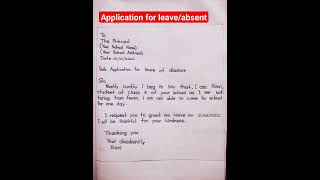 Application for leave/absent
To
The Principal
(Your School Name)
(Your School Address)
Date: 01/01/2022
Sub: Application for leave of absence
Sir,
Mostly humbly I beg to say that, I am Ravi,
student of class X of your school as I am suf
fering from fever, I am not able to come to school
for one day.
I request you to grant me leave on
I will be thankful for your kindness.
Thanking you
Your obediently
Ravi